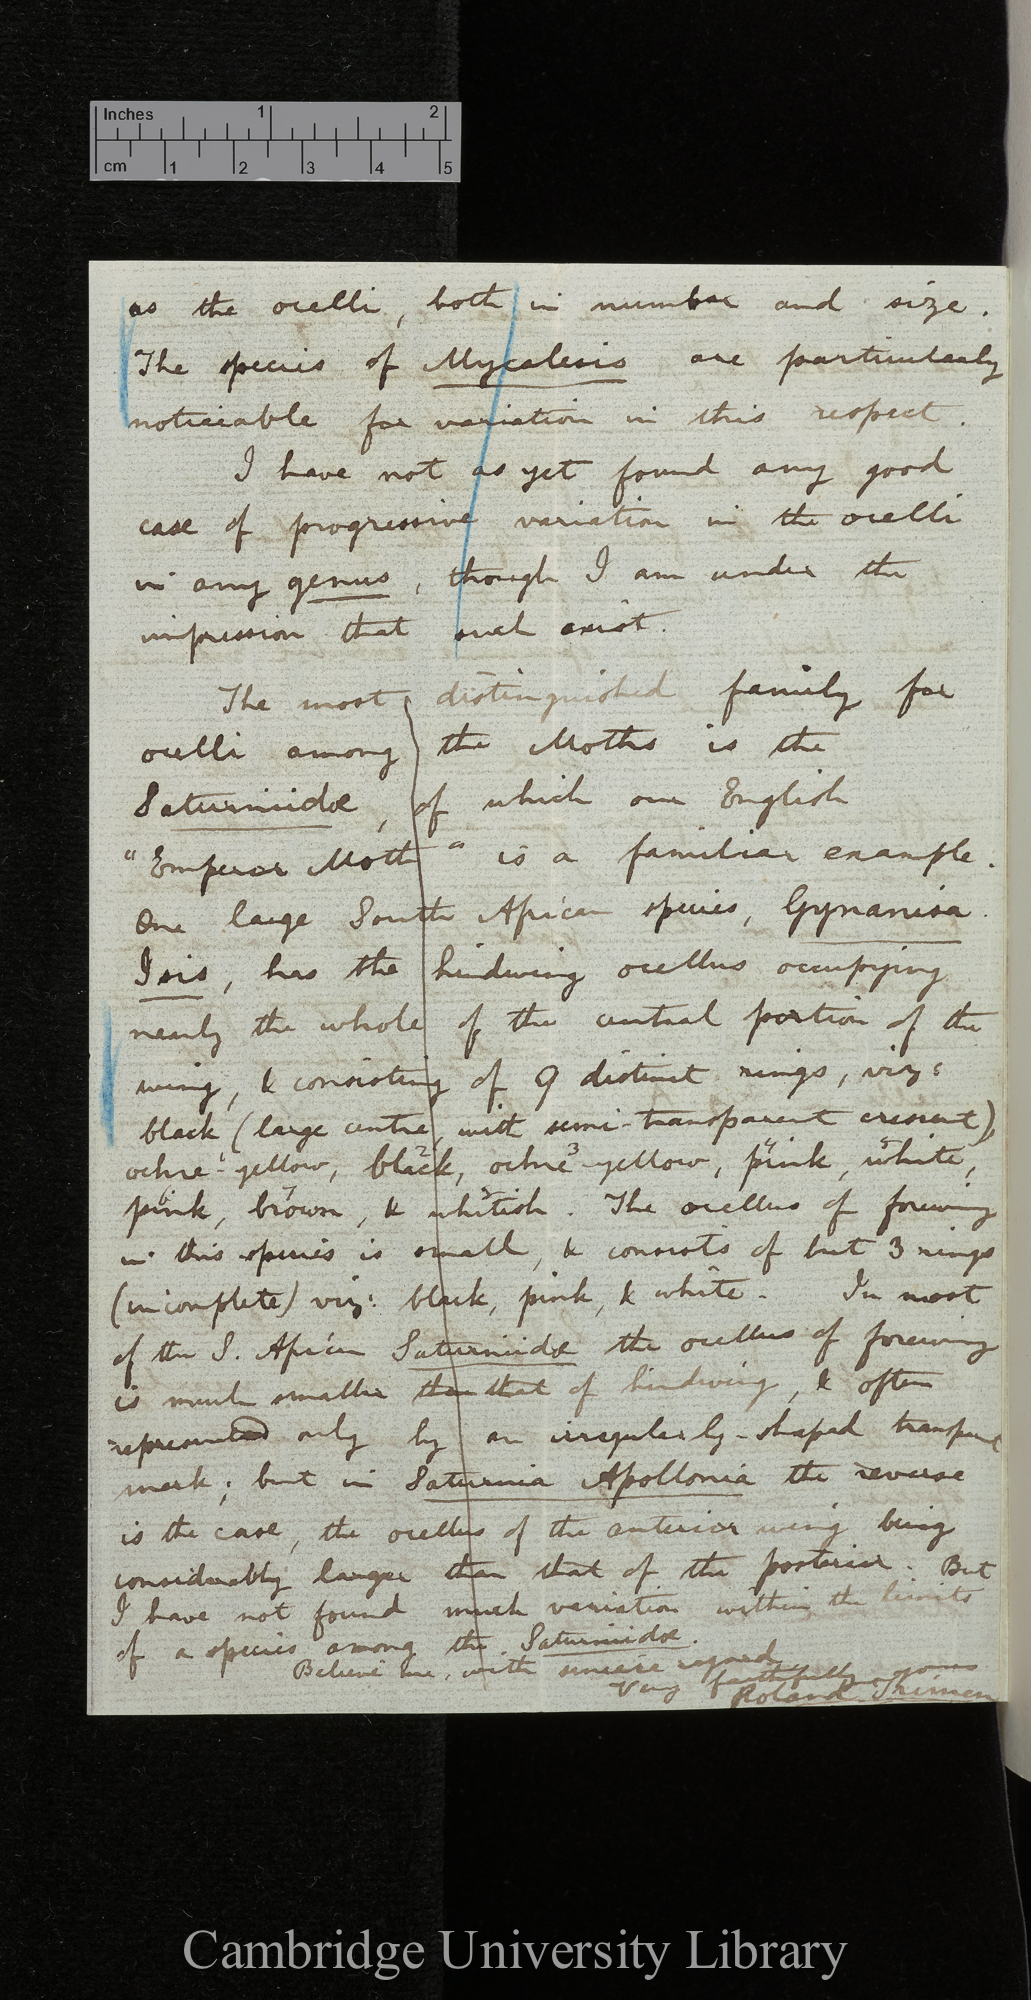 Inches 1 2
cm 1 2 3 4 5
as the ocelli, both in number and size.
The species of Mycalesis are particularly
noticeable for variation in this respect.
I have not as yet found any good
case of progressive variation in the ocelli
in any genus, though I am under the
impression that such exist.
The most distinguished family for
ocelli among the Moths is the
Saturniidæ, of which our English
"Emperor Moth" is a familiar example.
One large South African species, Gynanisa
Isis, has the hindwing ocellus occupying
nearly the whole of the central portion of the
wing, & consisting of 9 distinct rings, viz:
black (large centre, with semi-transparent crescent),
ochre-yellow, black, ochre-yellow, pink, white,
pink, brown, & whitish. The ocellus of forewing
in this species is small, & consists of but 3 rings
(incomplete) viz: black, pink, & white. In most
of the S. African Saturniidæ the ocellus of forewing
is much smaller than that of hindwing, & often
represented only by an irregularly-shaped transparent
mark; but in Saturnia Apollonia the reverse
is the case, the ocellus of the anterior wing being
considerably larger than that of the posterior. But
I have not found much variation within the limits
of a species among the Saturniidæ.
Believe me, with sincere regard,
Very faithfully yours
Roland Trimen
Cambridge University Library